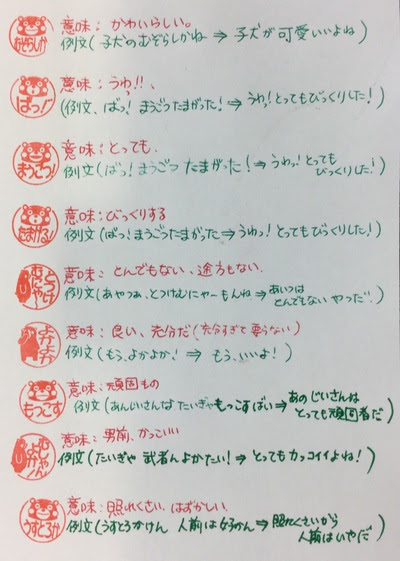 むぞらしか
意味：かわいらしい。
例文（子犬のむぞらしかね ⇒ 子犬が可愛いいよね）
ばっ！
意味：うわっ!!、
（例文、ばっ！まうごつたまがった！⇒うわっ！とってもびっくりした！）
まうごつ！
意味：とっても、
例文（ばっ！まうごつ たまがった！⇒うわっ！とても
びっくりした！）
たまげる！
意味：びっくりする
例文（ばっ！まうごつたまがった⇒うわっ！とってもびっくりした！）
とつけ
むにゃ〜
意味：とんでもない、途方もない、
例文（あやつぁ、とつけむにゃ〜もんね⇒あいつは
とんでもない やつだ"）
よかよか
意味：良い、充分だ（充分すぎて要らない）
例文（もう、よかよか！ ⇒ もう、いいよ！）
もっこす
意味：頑固もの
例文（あんじいさんな たいぎゃもっこすばい⇒あのじいさんは
とっても頑固者だ）
むしゃん
よか
意味：男前、かっこいい
例文（たいぎゃ 武者んよかたい！⇒とってもカッコイイよね！）
うすとろか
意味：照れくさい、はずかしい
例文（うすとろかけん 人前は好かん⇒照れくさいから
人前はいやだ）